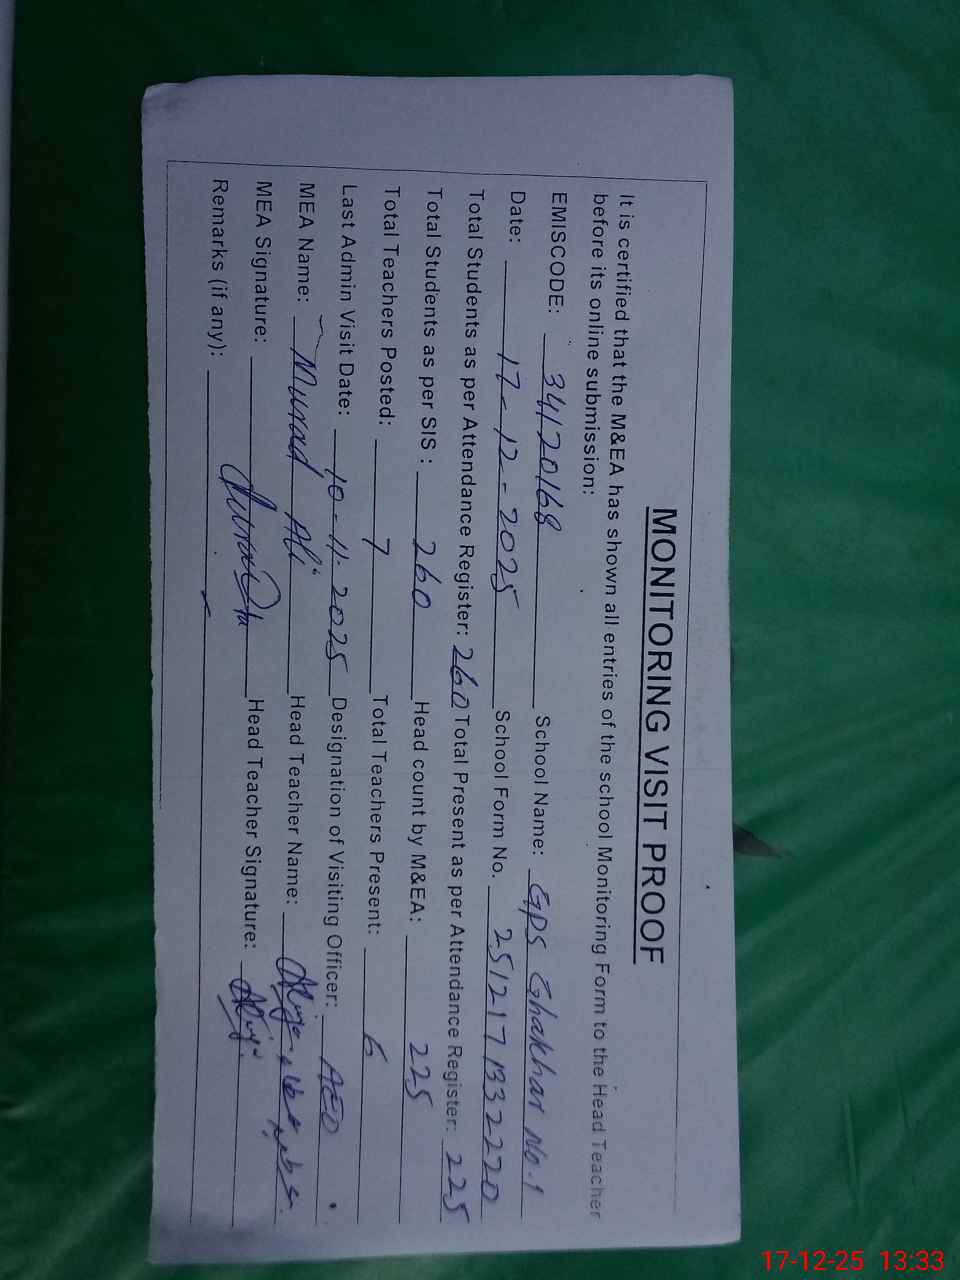 MONITORING VISIT PROOF
It is certified that the M&EA has shown all entries of the school Monitoring Form to the Head Teacher
before its online submission:
EMISCODE: 34120168 School Name: GPS Ghakhar No.1
Date: 17-12-2025 School Form No. 251217132220
Total Students as per Attendance Register: 260 Total Present as per Attendance Register: 225
Total Students as per SIS : 260 Head count by M&EA: 225
Total Teachers Posted: 7 Total Teachers Present: 6
Last Admin Visit Date: 10-11-2025 Designation of Visiting Officer: AEO
MEA Name: Murad Ali Head Teacher Name:
MEA Signature: Head Teacher Signature:
Remarks (if any):
17-12-25 13:33